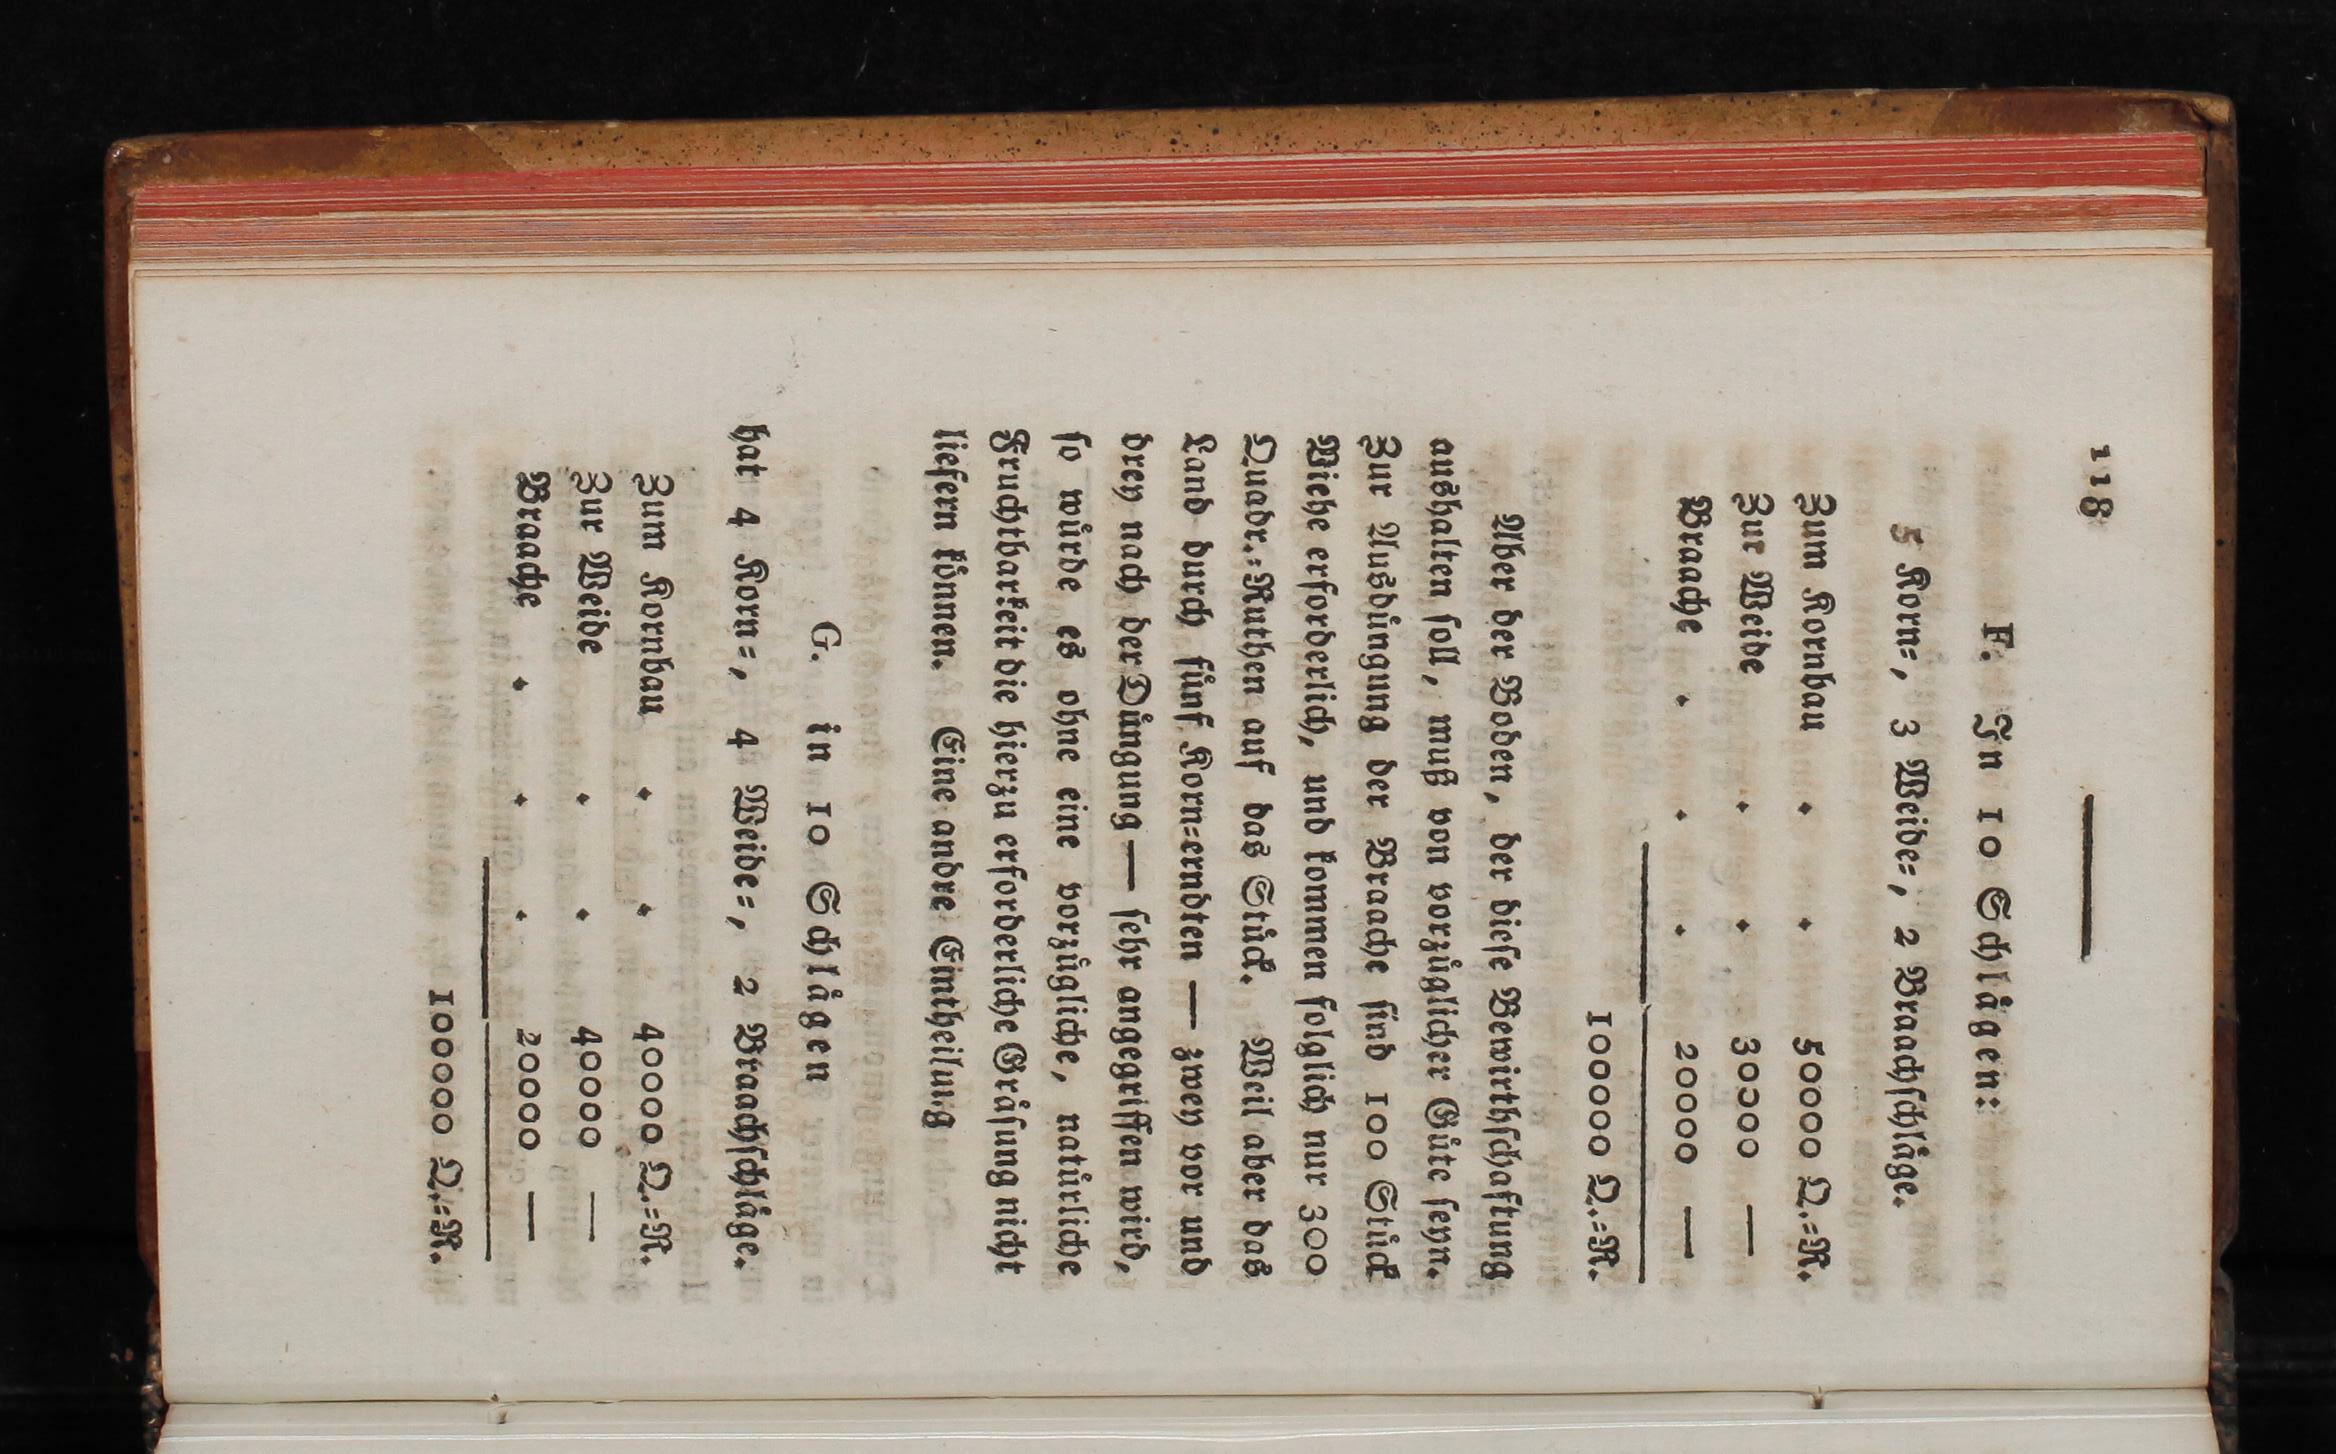 118
F. In 10 Schlägen:
5 Korn=, 3 Weide=, 2 Braachschläge.
Zum Kornbau 50000 Q.=R.
Zur Weide 30000 —
Braache 20000 —
100000 Q.=R.
Aber der Boden, der diese Bewirthschaftung
aushalten soll, muß von vorzüglicher Güte seyn.
Zur Ausdüngung der Braache sind 100 Stück
Viehe erforderlich, und kommen folglich nur 300
Quadr.=Ruthen auf das Stück. Weil aber das
Land durch fünf Korn=erndten — zwey vor und
drey nach der Düngung — sehr angegriffen wird,
so würde es ohne eine vorzügliche, natürliche
Fruchtbarkeit die hierzu erforderliche Gräsung nicht
liefern können. Eine andre Eintheilung
G. in 10 Schlägen
hat 4 Korn=, 4 Weide=, 2 Braachschläge.
Zum Kornbau 40000 Q.=R.
Zur Weide 40000 —
Braache 20000 —
100000 Q.=R.